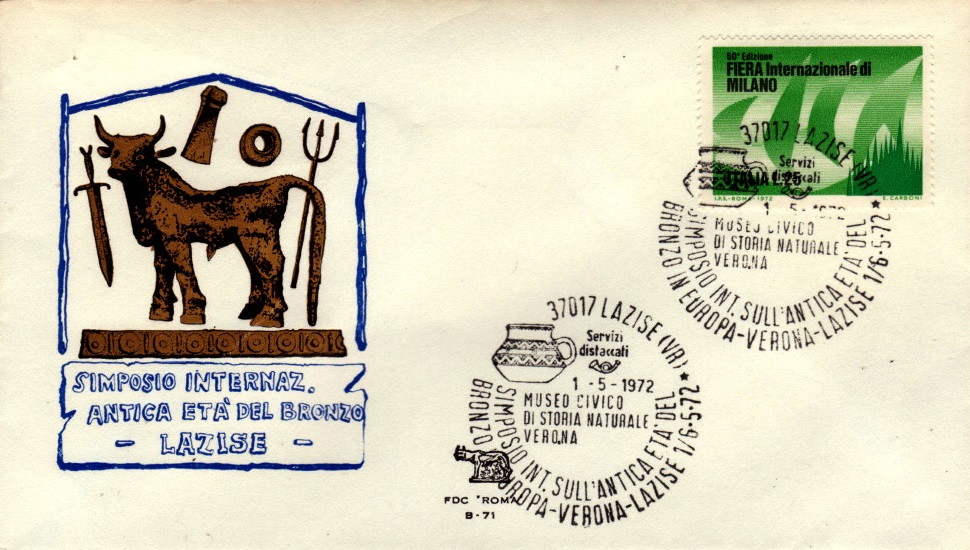 50ª Edizione
FIERA Internazionale di
MILANO
ITALIA L.25
I.P.S.-ROMA-1972 E. CARBONI
37017 LAZISE (VR)
Servizi
distaccati
1-5-1972
MUSEO CIVICO
DI STORIA NATURALE
VERONA
SIMPOSIO INT. SULL'ANTICA ETA' DEL
BRONZO IN EUROPA-VERONA-LAZISE 1/6-5-72 *
SIMPOSIO INTERNAZ.
ANTICA ETÀ DEL BRONZO
- LAZISE -
37017 LAZISE (VR)
Servizi
distaccati
1-5-1972
MUSEO CIVICO
DI STORIA NATURALE
VERONA
SIMPOSIO INT. SULL'ANTICA ETA' DEL
BRONZO EUROPA-VERONA-LAZISE 1/6-5-72 *
FDC "ROMA
B-71